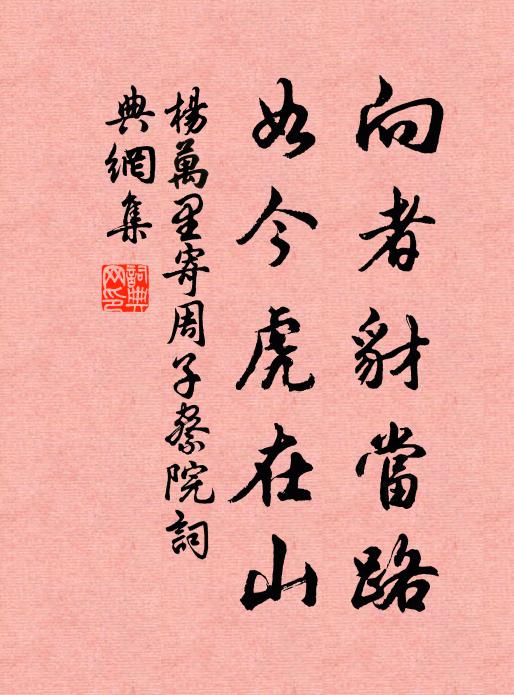 向者豺當路
如今虎在山
楊萬里寄周子察院詞
典網集
詞典網印